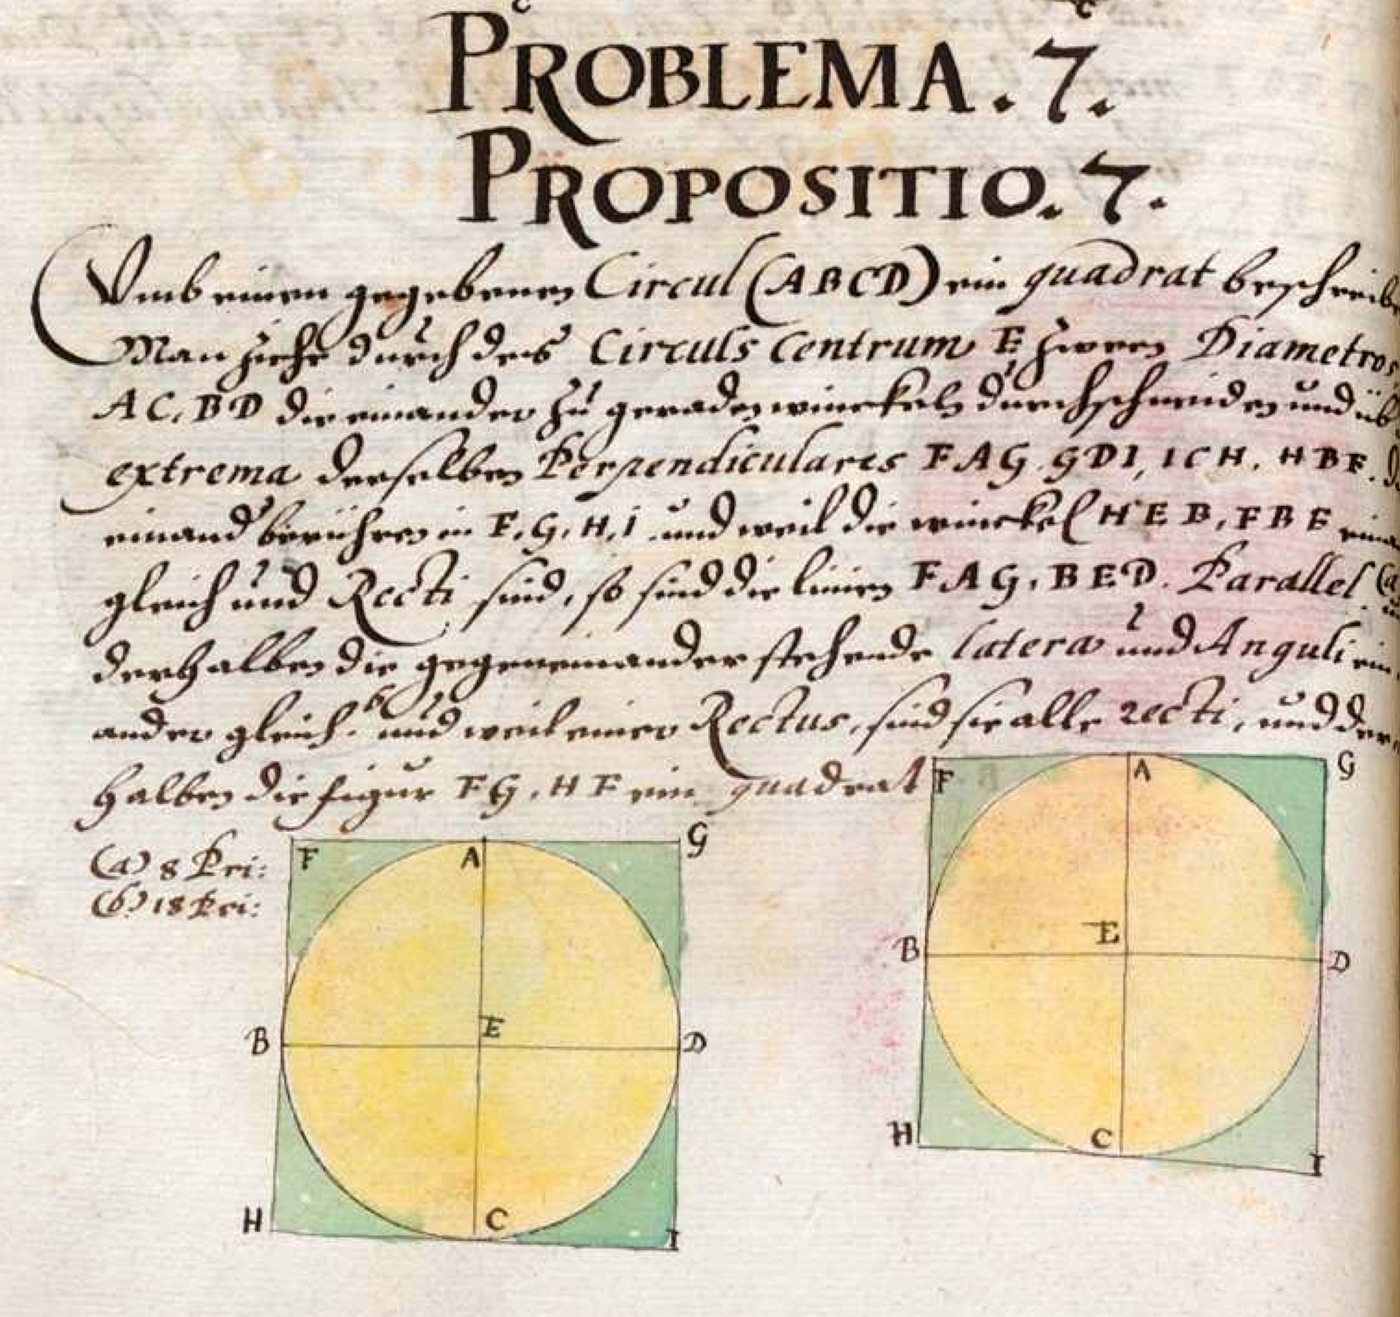 PROBLEMA. 7.
PROPOSITIO. 7.
Umb einen gegebenen Circul (ABCD) ein quadrat beschreib
Man ziehe durch des Circuls Centrum E zween Diametros
AC, BD die einander zu geraden winckeln durchschneiden und üb
extrema derselben Perpendiculares FAG, GDI, ICH, HBF.
einand berühren in F, G, H, I und weil die winckel HEB, FBE eina
gleich und Recti sind, so sind die linien FAG, BED. Parallel (a
derhalben die gegeneinander stehende latera und Anguli ein
ander gleich b und weil einer Rectus, sind sie alle recti, und der
halben die figur FG, HF ein quadrat
(a) 8 Pri:
(b) 18 Pri:
F A G
B E D
H C I
F A G
B E D
H C I